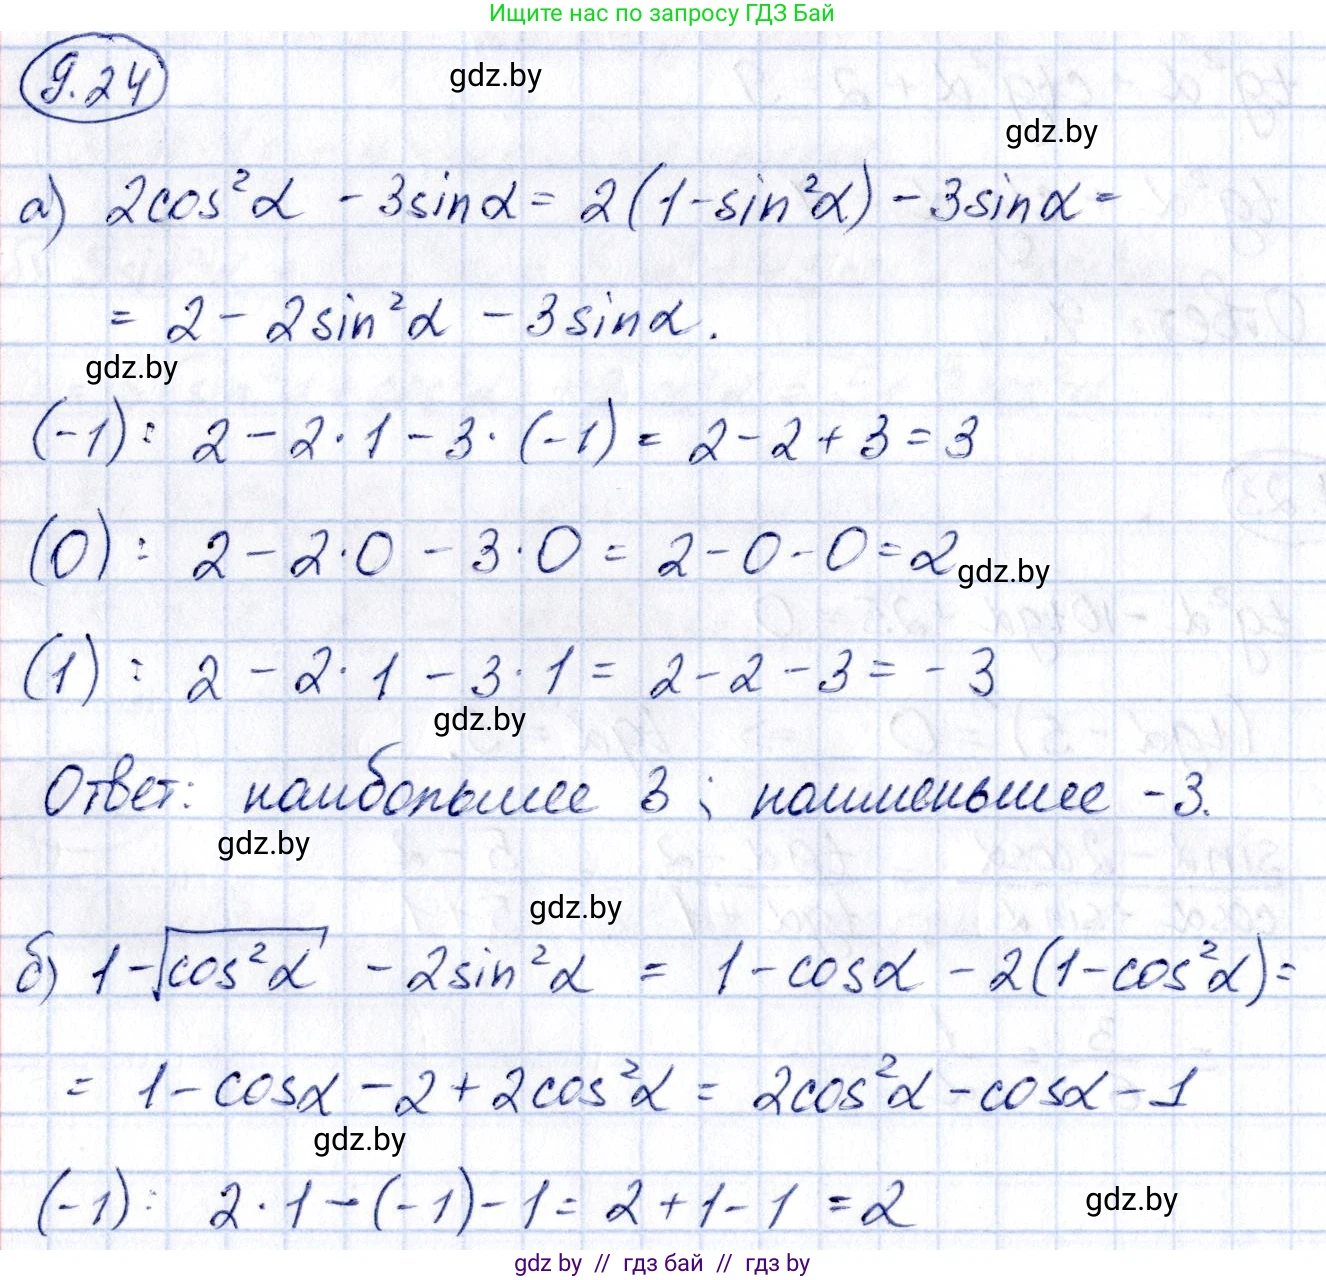 Ищите нас по запросу ГДЗ Бай
9.24
gdz.by
gdz.by
а) 2cos²α - 3sinα = 2(1-sin²α) - 3sinα =
= 2 - 2sin²α - 3sinα.
gdz.by
(-1): 2 - 2·1 - 3·(-1) = 2 - 2 + 3 = 3
(0): 2 - 2·0 - 3·0 = 2 - 0 - 0 = 2
gdz.by
(1): 2 - 2·1 - 3·1 = 2 - 2 - 3 = -3
gdz.by
Ответ: наибольшее 3; наименьшее -3.
gdz.by
gdz.by
б) 1-√cos²α - 2sin²α = 1 - cosα - 2(1-cos²α) =
= 1 - cosα - 2 + 2cos²α = 2cos²α - cosα - 1
gdz.by
(-1): 2·1 - (-1) - 1 = 2 + 1 - 1 = 2
gdz.by
gdz by // гдз бай // gdz by